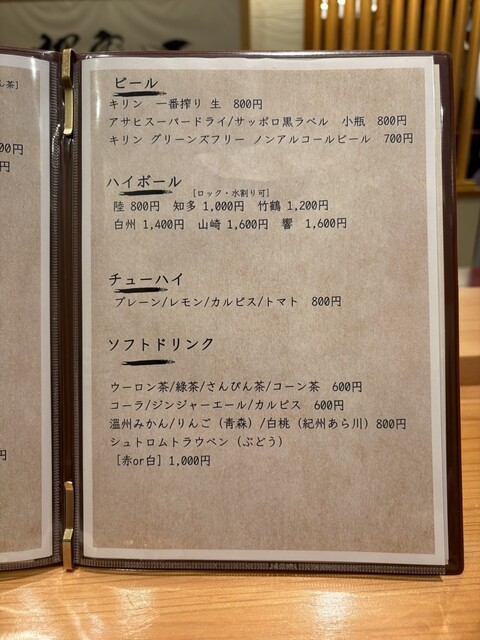 ん茶]
00円
円
円
ビール
キリン 一番搾り 生 800円
アサヒスーパードライ/サッポロ黒ラベル 小瓶 800円
キリン グリーンズフリー ノンアルコールビール 700円
ハイボール
[ロック・水割り可]
陸 800円 知多 1,000円 竹鶴 1,200円
白州 1,400円 山崎 1,600円 響 1,600円
チューハイ
プレーン/レモン/カルピス/トマト 800円
ソフトドリンク
ウーロン茶/緑茶/さんぴん茶/コーン茶 600円
コーラ/ジンジャーエール/カルピス 600円
温州みかん/りんご（青森）/白桃（紀州あら川）800円
シュトロムトラウベン（ぶどう）
[赤or白] 1,000円